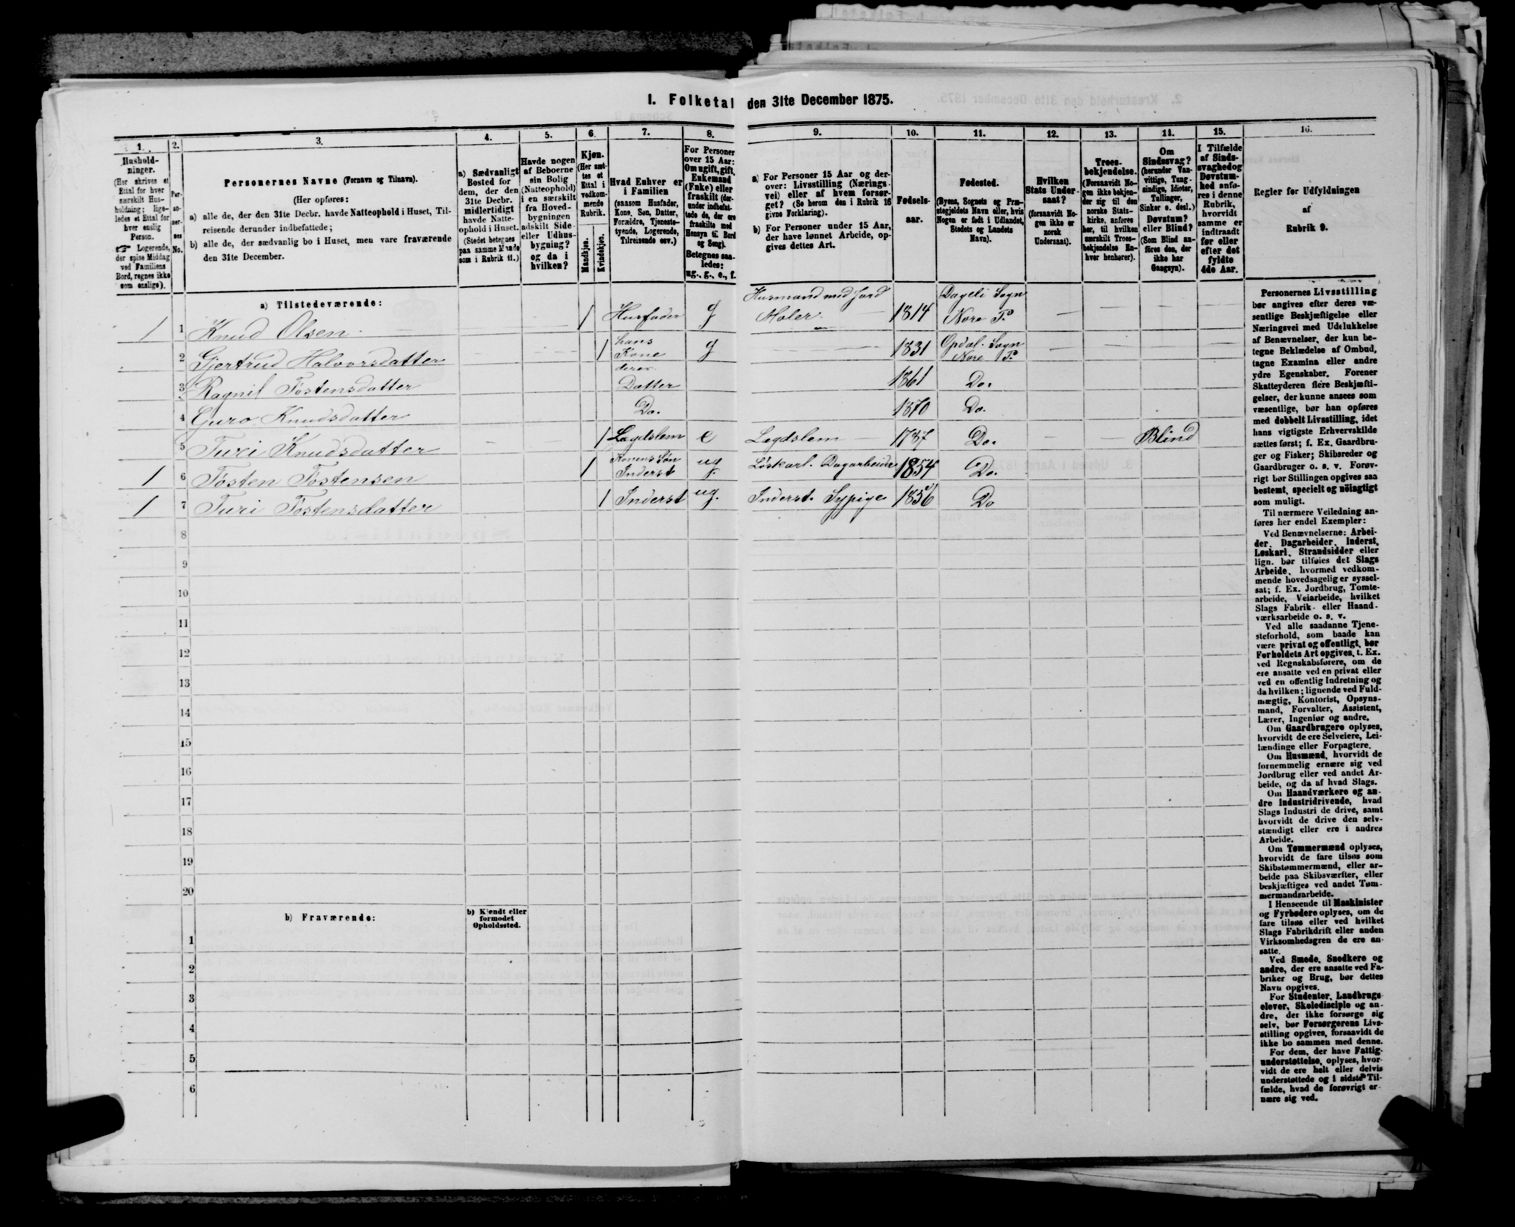 I. Folketal den 31te December 1875.
1. 2. 3. 4. 5. 6. 7. 8. 9. 10. 11. 12. 13. 14. 15. 16.
Hushold-
ninger.
(Her skrives et
Ettal for hver
særskilt Hus-
holdning; lige-
ledes et Ettal for
hver enslig
Person.
☞ Logerende,
der spise Middag
ved Familiens
Bord, regnes ikke
som enslige).
Per-
so-
ner-
nes
No.
Personernes Navne (Fornavn og Tilnavn).
(Her opføres:
a) alle de, der den 31te Decbr. havde Natteophold i Huset, Til-
reisende derunder indbefattede;
b) alle de, der sædvanlig bo i Huset, men vare fraværende
den 31te December.
a) Sædvanligt
Bosted for
dem, der den
31te Decbr.
midlertidigt
havde Natte-
ophold i Huset.
(Stedet betegnes
paa samme Maade
som i Rubrik 11.)
Havde nogen
af Beboerne
sin Bolig
(Natteophold)
i en særskilt
fra Hoved-
bygningen
adskilt Side-
eller Udhus-
bygning?
og da i
hvilken?
Kjøn.
(Her sæt-
tes et
Ettal i
vedkom-
mende
Rubrik.
Mandkjøn.
Kvindekjøn.
Hvad Enhver er
i Familien
(saasom Husfader,
Kone, Søn, Datter,
Forældre, Tjeneste-
tyende, Logerende,
Tilreisende osv.)
For Personer
over 15 Aar:
Om ugift, gift,
Enkemand
(Enke) eller
fraskilt (der-
under indbefat-
tede de, der ere
fraskilte med
Hensyn til Bord
og Seng).
Betegnes saa-
ledes:
ug., g., e., f.
a) For Personer 15 Aar og der-
over: Livsstilling (Nærings-
vei) eller af hvem forsør-
get? (Se herom den i Rubrik 16
givne Forklaring).
b) For Personer under 15 Aar,
der have lønnet Arbeide, op-
gives dettes Art.
Fødsels-
aar.
Fødested.
(Byens, Sognets og Præ-
stegjeldets Navn eller, hvis
Nogen er født i Udlandet,
Stedets og Landets
Navn).
Hvilken
Stats Under-
saat?
(forsaavidt No-
gen ikke er
norsk
Undersaat).
Troes-
bekjendelse.
(Forsaavidt No-
gen ikke bekjen-
der sig til den
norske Stats-
kirke, anføres
her, til hvilken
særskilt Troes-
bekjendelse En-
hver henhører).
Om
Sindssvag?
(herunder Van-
vittige, Tung-
sindige, Idioter,
Tullinger,
Sinker o. desl.)
Døvstum?
eller Blind?
(Som Blind an-
føres den, der
ikke har
Gangsyn).
I Tilfælde
af Sinds-
svaghed og
Døvstum-
hed anfø-
res i denne
Rubrik,
hvorvidt
samme er
indtraadt
før eller
efter det
fyldte
4de Aar.
Regler for Udfyldningen
af
Rubrik 9.
a) Tilstedeværende:
1 1 Knud Olsen 1 Husfader g Husmand med Jord Maler 1814 Dagali Sogn Nore P.
2 Gjertrud Halvorsdatter 1 hans Kone g 1831 Opdal Sogn Nore P.
3 Ragnil Tostensdatter deres Datter 1861 Do.
4 Guro Knudsdatter Do. 1870 Do.
5 Turi Knudsdatter 1 Lægdslem e Lægdslem 1787 Do. Blind
1 6 Tosten Tostensen 1 Konens Søn Inderst ug. Løskarl. Dagarbeider 1854 Do.
1 7 Turi Tostensdatter 1 Inderst ug. Inderst. Sypige 1856 Do
8
9
10
11
12
13
14
15
16
17
18
19
20
b) Fraværende:
b) Kjendt eller
formodet
Opholdssted.
1
2
3
4
5
6
Personernes Livsstilling
bør angives efter deres væ-
sentlige Beskjæftigelse eller
Næringsvei med Udelukkelse
af Benævnelser, der kun be-
tegne Beklædelse af Ombud,
tagne Examina eller andre
ydre Egenskaber. Forener
Skatteyderen flere Beskjæfti-
gelser, der kunne ansees som
væsentlige, bør han opføres
med dobbelt Livsstilling, idet
hans vigtigste Erhvervskilde
sættes først; f. Ex. Gaardbru-
ger og Fisker; Skibsreder og
Gaardbruger o. s. v. Forøv-
rigt bør Stillingen opgives saa
bestemt, specielt og nöiagtigt
som muligt.
Til nærmere Veiledning an-
føres her endel Exempler:
Ved Benævnelserne: Arbei-
der, Dagarbeider, Inderst,
Løskarl, Strandsidder eller
lign. bør tilføies det Slags
Arbeide, hvormed vedkom-
mende hovedsagelig er syssel-
sat; f. Ex. Jordbrug, Tomte-
arbeide, Veiarbeide, hvilket
Slags Fabrik- eller Haand-
værksarbeide o. s. v.
Ved alle saadanne Tjene-
steforhold, som baade kan
være privat og offentligt, bør
Forholdets Art opgives, t. Ex.
ved Regnskabsførere, om de
ere ansatte ved en privat eller
ved en offentlig Indretning og
da hvilken; lignende ved Fuld-
mægtig, Kontorist, Opsyns-
mand, Forvalter, Assistent,
Lærer, Ingeniør og andre.
Om Gaardbrugere oplyses,
hvorvidt de ere Selveiere, Lei-
lændinge eller Forpagtere.
Om Husmænd, hvorvidt de
fornemmelig ernære sig ved
Jordbrug eller ved andet Ar-
beide, og da af hvad Slags.
Om Haandværkere og an-
dre Industridrivende, hvad
Slags Industri de drive, samt
hvorvidt de drive den selv-
stændigt eller ere i andres
Arbeide.
Om Tømmermænd oplyses,
hvorvidt de fare tilsøs som
Skibstømmermænd, eller ar-
beide paa Skibsværfter, eller
beskjæftiges ved andet Tøm-
mermandsarbeide.
I Henseende til Maskinister
og Fyrbødere oplyses, om de
fare tilsøs eller ved hvilket
Slags Fabrikdrift eller anden
Virksomhedsgren de ere an-
satte.
Ved Smede, Snedkere og
andre, der ere ansatte ved Fa-
briker og Brug, bør dettes
Navn opgives.
For Studenter, Landbrugs-
elever, Skoledisciple og an-
dre, der ikke forsørge sig
selv, bør Forsørgerens Livs-
stilling opgives, forsaavidt de
ikke bo sammen med denne.
For dem, der have Fattig-
understøttelse, oplyses, hvor-
vidt de ere helt eller delvis
understøttede og i sidste Til-
fælde, hvad de forøvrigt er-
nære sig ved.